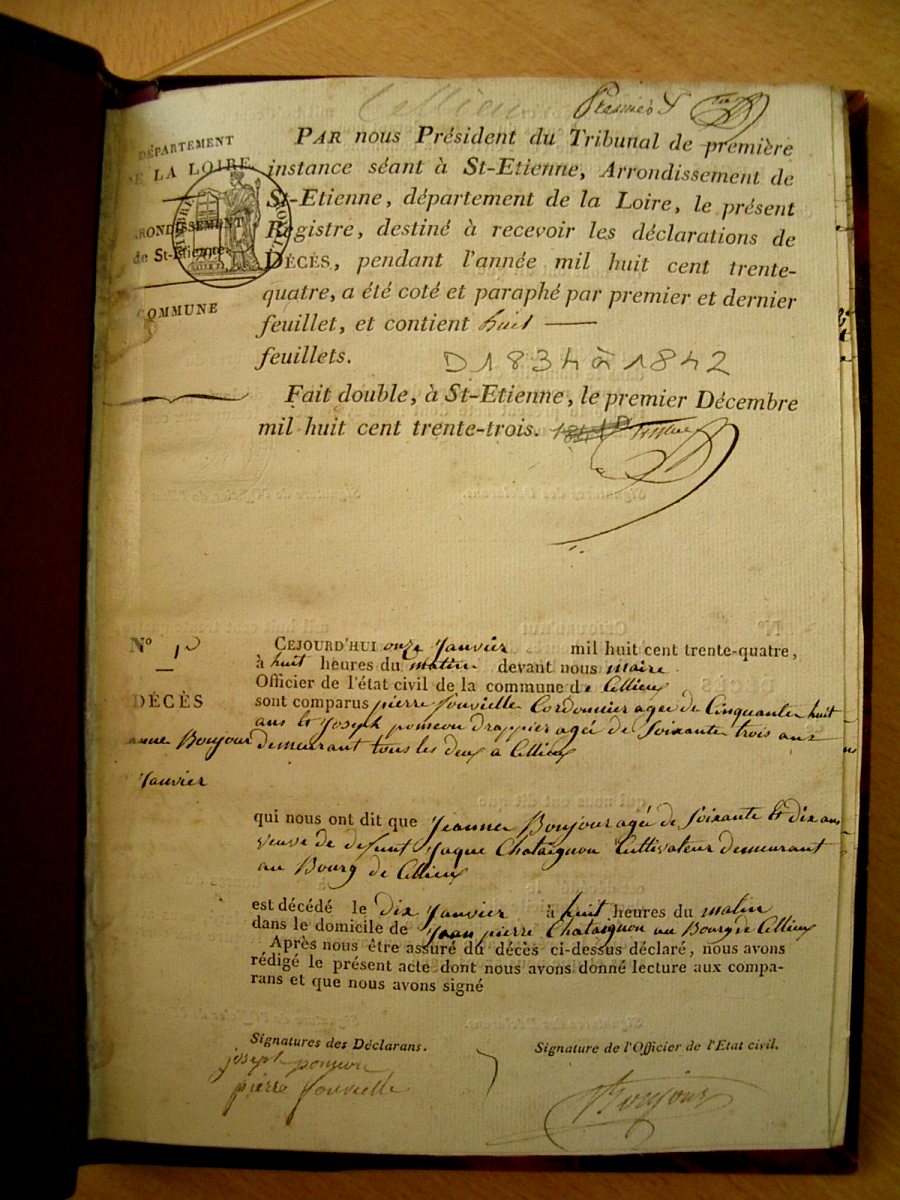 Cellieu
Premier f
DÉPARTEMENT
DE LA LOIRE.
ARRONDISSEMENT
de St-Etienne.
COMMUNE
PAR nous Président du Tribunal de première
instance séant à St-Etienne, Arrondissement de
St-Etienne, département de la Loire, le présent
Registre, destiné à recevoir les déclarations de
DÉCÈS, pendant l'année mil huit cent trente-
quatre, a été coté et paraphé par premier et dernier
feuillet, et contient huit —
feuillets.
D 1834 à 1842
Fait double, à St-Etienne, le premier Décembre
mil huit cent trente-trois.
N° 1
DÉCÈS
anne Boujour
Janvier
CEJOURD'HUI onze Janvier mil huit cent trente-quatre,
à huit heures du matin devant nous maire
Officier de l'état civil de la commune de Cellieu
sont comparus pierre fouvielle Cordonnier agée de Cinquante huit
ans et Joseph pomeon drappier agée de Soixante trois ans
demeurant tous les deux à Cellieu
qui nous ont dit que Jeanne Boujour agée de Soixante Et dix ans
veuve de defunt Jaque Chataignon Cultivateur demeurant
au Bourg de Cellieu
est décédé le Dix Janvier à huit heures du matin
dans le domicile de Jean pierre Chataignon au Bourg de Cellieu
Après nous être assuré du décès ci-dessus déclaré, nous avons
rédigé le présent acte dont nous avons donné lecture aux compa-
rans et que nous avons signé
Signatures des Déclarans.
Signature de l'Officier de l'Etat civil.
joseph pomeon
pierre fouvielle
Boujour